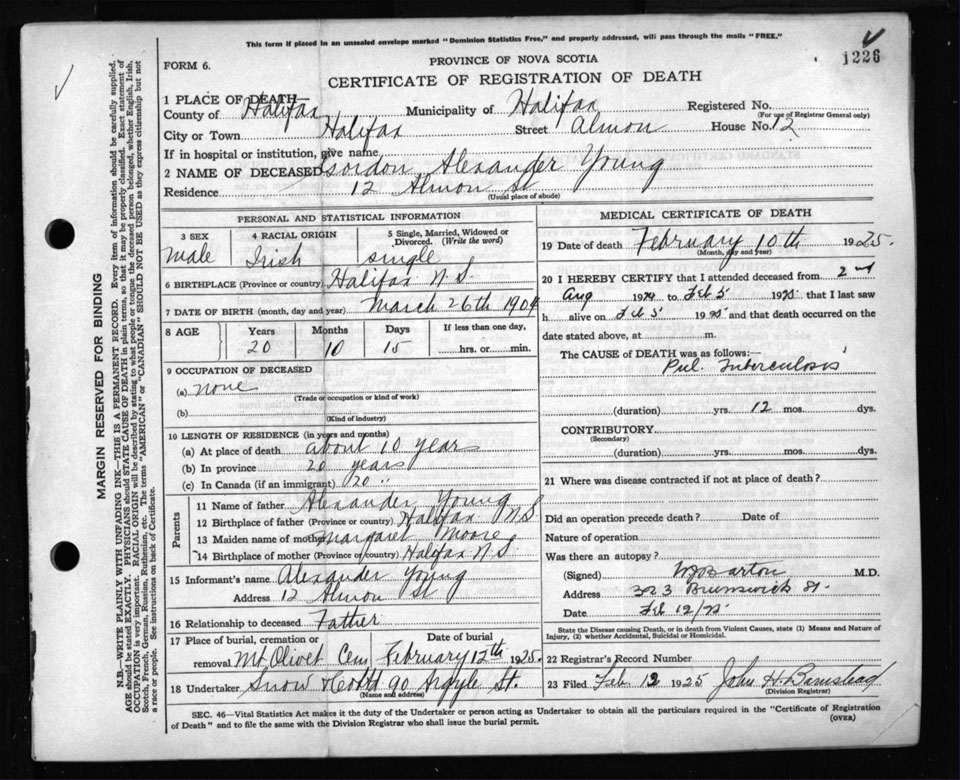 This form if placed in an unsealed envelope marked "Dominion Statistics Free," and properly addressed, will pass through the mails "FREE."
1226
FORM 6.
PROVINCE OF NOVA SCOTIA
CERTIFICATE OF REGISTRATION OF DEATH
1 PLACE OF DEATH—
County of Halifax Municipality of Halifax Registered No.
(For use of Registrar General only)
City or Town Halifax Street Almon House No. 12
If in hospital or institution, give name
2 NAME OF DECEASED Gordon Alexander Young
Residence 12 Almon St
(Usual place of abode)
PERSONAL AND STATISTICAL INFORMATION
3 SEX 4 RACIAL ORIGIN 5 Single, Married, Widowed or Divorced. (Write the word)
Male Irish single
6 BIRTHPLACE (Province or country) Halifax N.S.
7 DATE OF BIRTH (month, day and year) March 26th 1904
8 AGE Years Months Days If less than one day,
20 10 15 hrs. or min.
9 OCCUPATION OF DECEASED
(a) none
(Trade or occupation or kind of work)
(b)
(Kind of industry)
10 LENGTH OF RESIDENCE (in years and months)
(a) At place of death about 10 years
(b) In province 20 years
(c) In Canada (if an immigrant) 20 "
Parents
11 Name of father Alexander Young
12 Birthplace of father (Province or country) Halifax N.S
13 Maiden name of mother Margaret Moore
14 Birthplace of mother (Province or country) Halifax N.S.
15 Informant's name Alexander Young
Address 12 Almon St
16 Relationship to deceased Father
17 Place of burial, cremation or removal Date of burial
Mt Olivet Cem February 12th 1925.
18 Undertaker Snow & Co Ltd 90 Argyle St.
(Name and address)
MEDICAL CERTIFICATE OF DEATH
19 Date of death February 10th 1925.
(Month, day and year)
20 I HEREBY CERTIFY that I attended deceased from 2nd
Aug 1924 to Feb 5 1925 that I last saw
h alive on Feb 5 1925 and that death occurred on the
date stated above, at m.
The CAUSE of DEATH was as follows:—
Pul. Tuberculosis
(duration) yrs. 12 mos. dys.
CONTRIBUTORY
(Secondary)
(duration) yrs. mos. dys.
21 Where was disease contracted if not at place of death?
Did an operation precede death? Date of
Nature of operation
Was there an autopsy?
(Signed) Barton M.D.
Address 323 Brunswick St.
Date Feb 12/25
State the Disease causing Death, or in death from Violent Causes, state (1) Means and Nature of Injury, (2) whether Accidental, Suicidal or Homicidal.
22 Registrar's Record Number
23 Filed Feb. 12 1925 John H Barnstead
(Division Registrar)
SEC. 46—Vital Statistics Act makes it the duty of the Undertaker or person acting as Undertaker to obtain all the particulars required in the "Certificate of Registration
of Death" and to file the same with the Division Registrar who shall issue the burial permit.
(OVER)
MARGIN RESERVED FOR BINDING
N.B.—WRITE PLAINLY WITH UNFADING INK—THIS IS A PERMANENT RECORD. Every item of information should be carefully supplied.
AGE should be stated EXACTLY. PHYSICIANS should STATE CAUSE OF DEATH in plain terms, so that it may be properly classified. Exact statement of
OCCUPATION is very important. RACIAL ORIGIN will be described by stating to what people or tongue the deceased person belonged, whether English, Irish,
Scotch, French, German, Russian, Ruthenian, etc. The terms "AMERICAN" or "CANADIAN" SHOULD NOT BE USED as they express citizenship but not
a race or people. See instructions on back of Certificate.